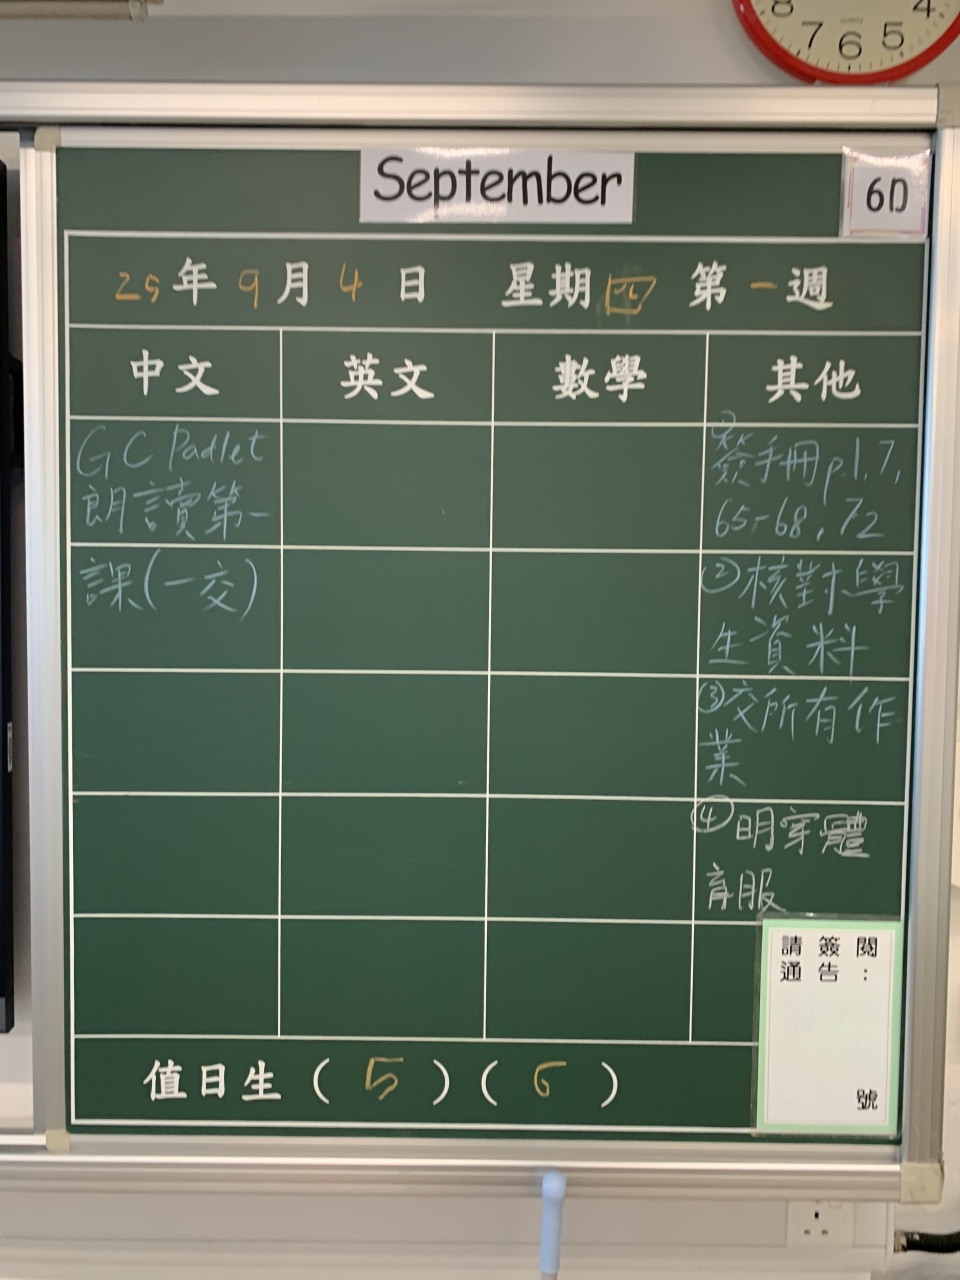 8 7 6 5 4
September
6D
25年9月4日 星期四 第一週
中文 英文 數學 其他
GC Padlet
朗讀第一
課(一交)
①簽手冊p.1,7,
65-68,72
②核對學
生資料
③交所有作
業
④明穿體
育服
請簽閱
通告:
號
值日生(5)(6)